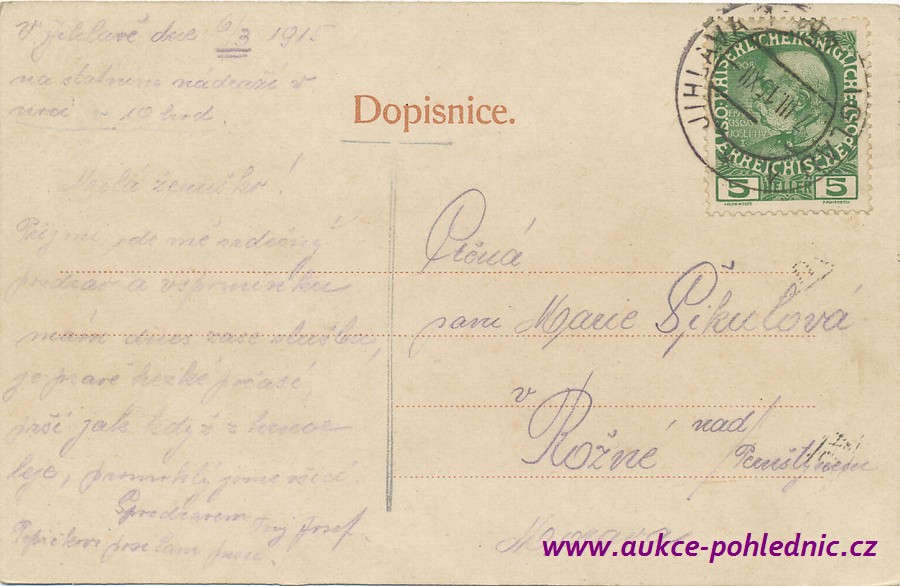 V Jihlavě dne 6/3 1915
na statnim nadraží v
noci v 10 hod.
Milá ženuško!
Přijmi ode mě srdečný
pozdrav a vzpomínku
mám dnes zase službu,
je pravé hezké počasé
prší jak když z konve
leje, promoklí jsme všed
S pozdravem Tvůj Josef
Pepičkovi posilám pusu
Dopisnice.
KAISERLICHE KÖNIGLICHE
ÖSTERREICHISCHE POST
5 HELLER 5
JIHLAVA
Ctěná
paní Marie Šikulová
v
Rožné nad
Pernštýnem
Morava
www.aukce-pohlednic.cz